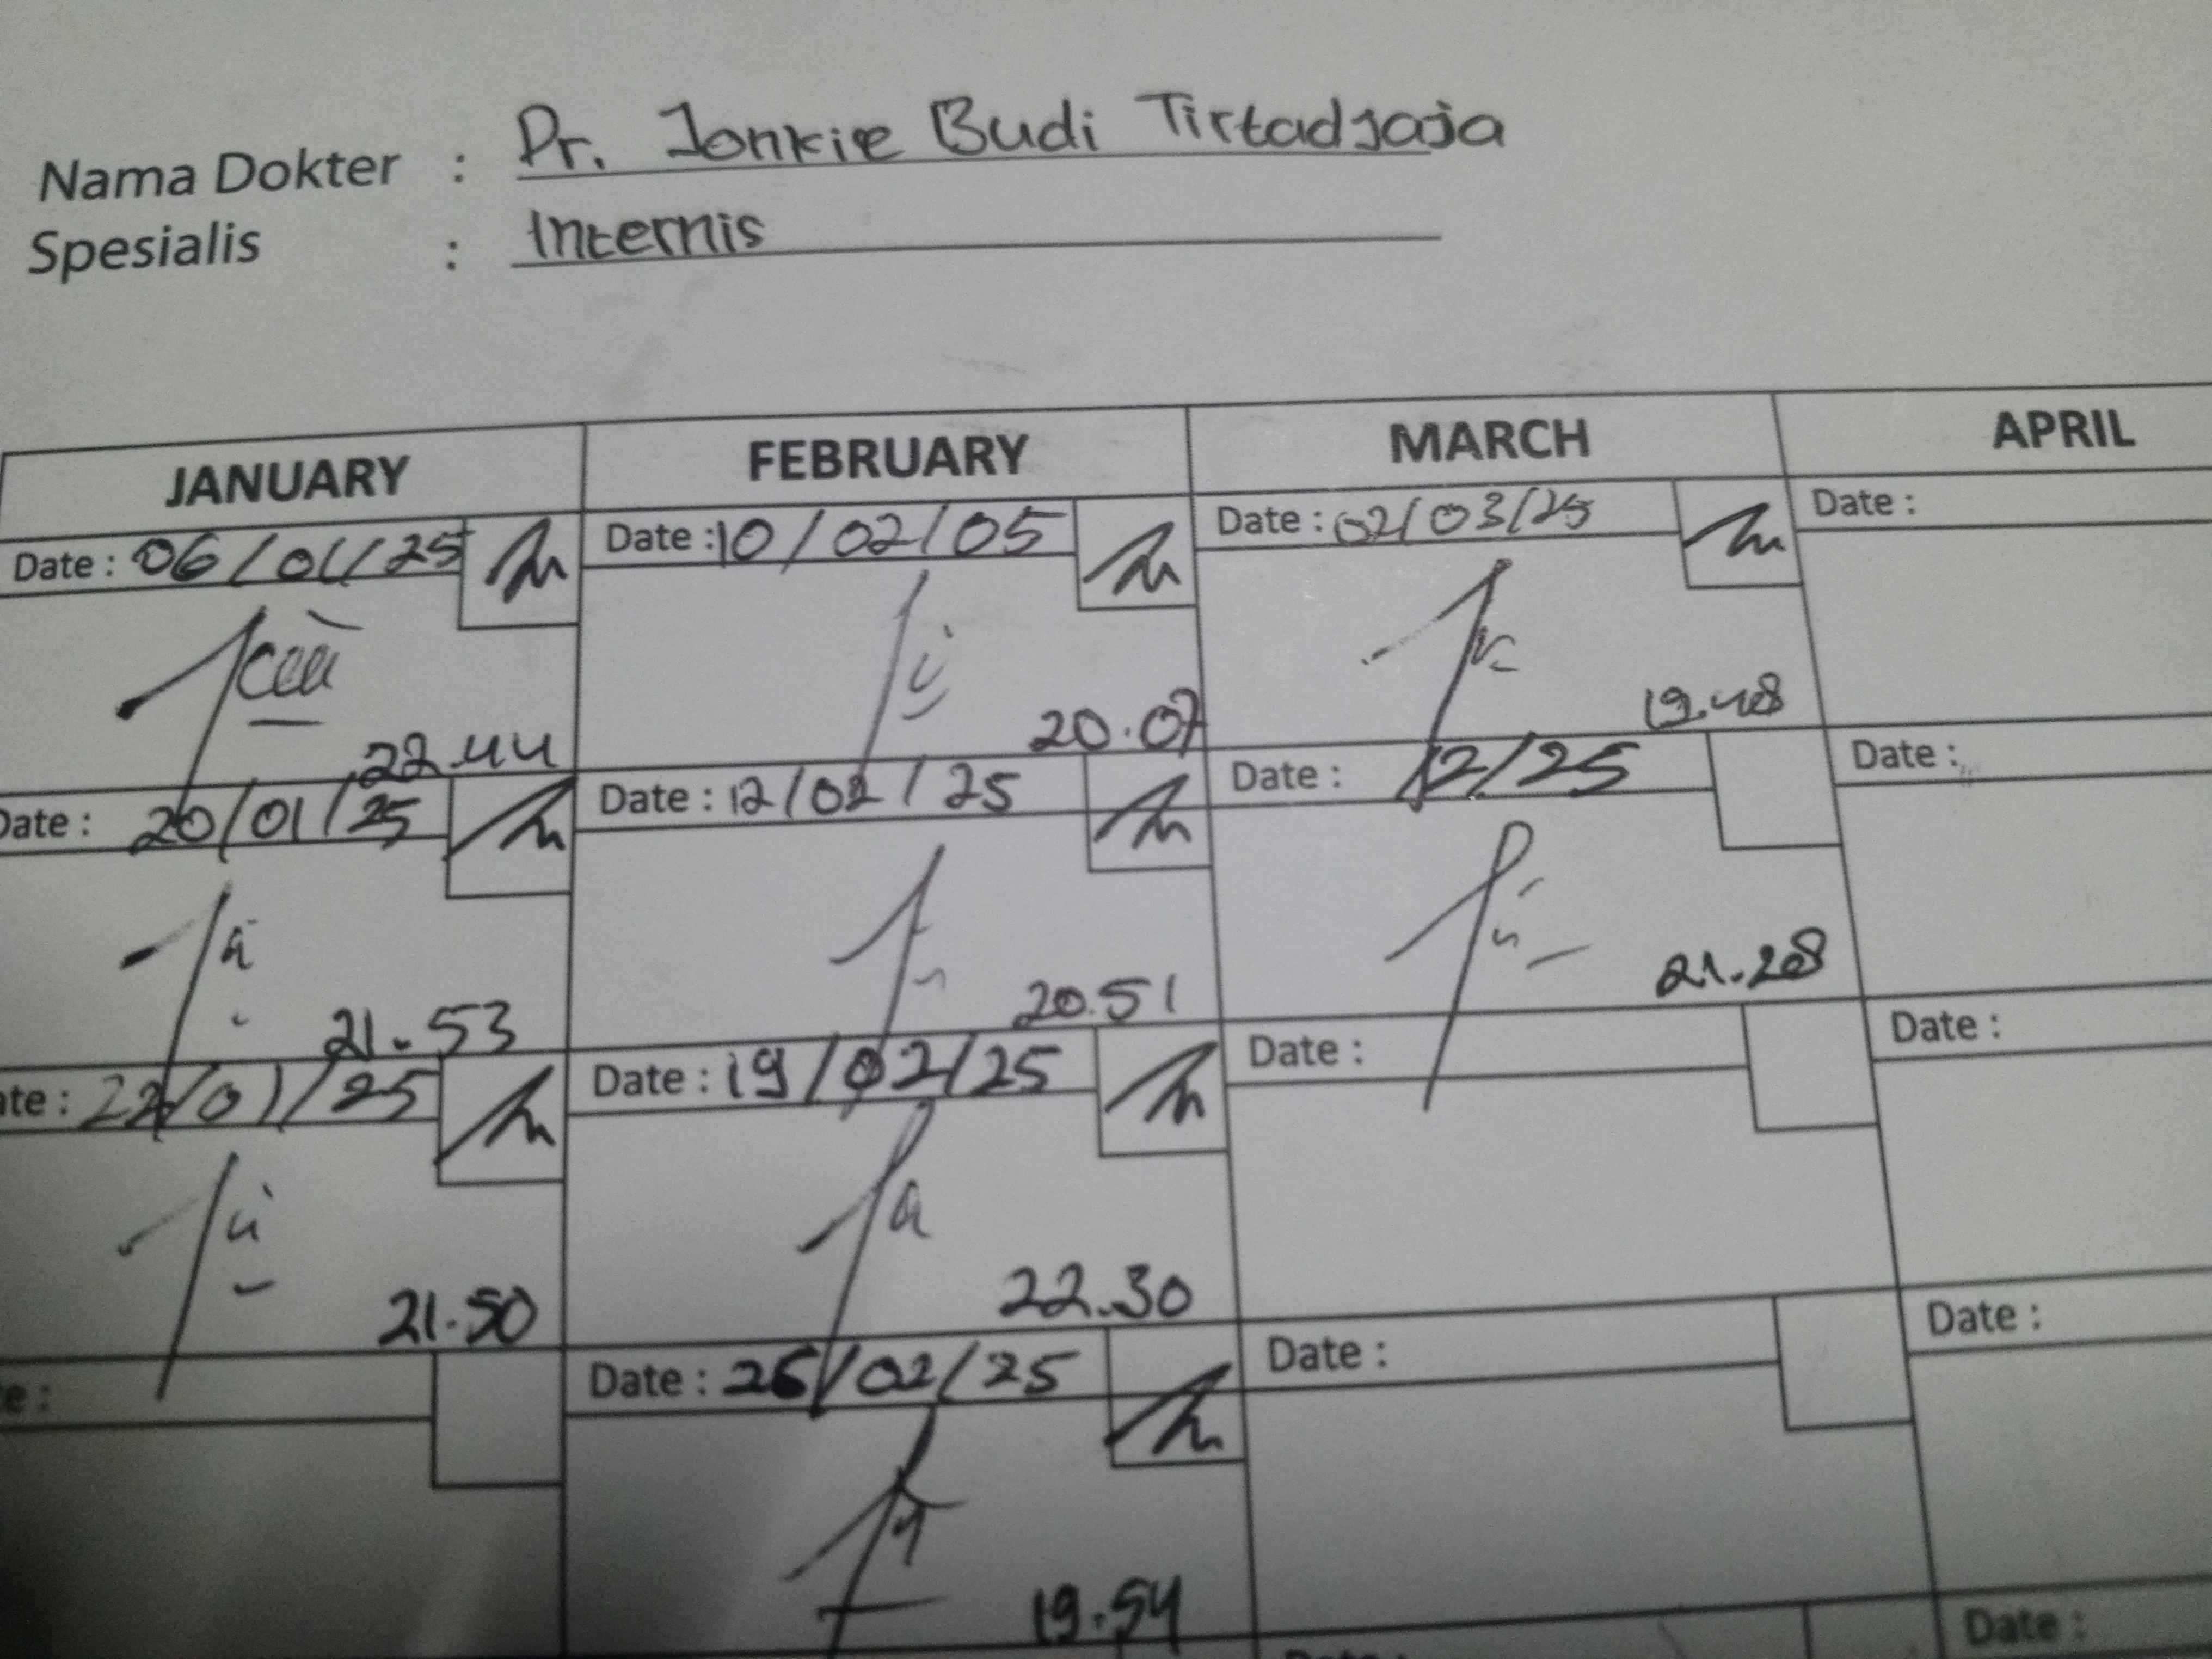 Nama Dokter : Dr. Jonkie Budi Tirtadjaja
Spesialis : Internis
JANUARY FEBRUARY MARCH APRIL
Date : 06/01/25 Date : 10/02/05 Date : 02/03/25 Date :
22.44 20.07 19.48
Date : 20/01/25 Date : 12/02/25 Date : 12/25 Date :
21.53 20.51 21.28
ate : 22/01/25 Date : 19/02/25 Date : Date :
21.50 22.30
e : Date : 26/02/25 Date : Date :
19.54
Date : Date :